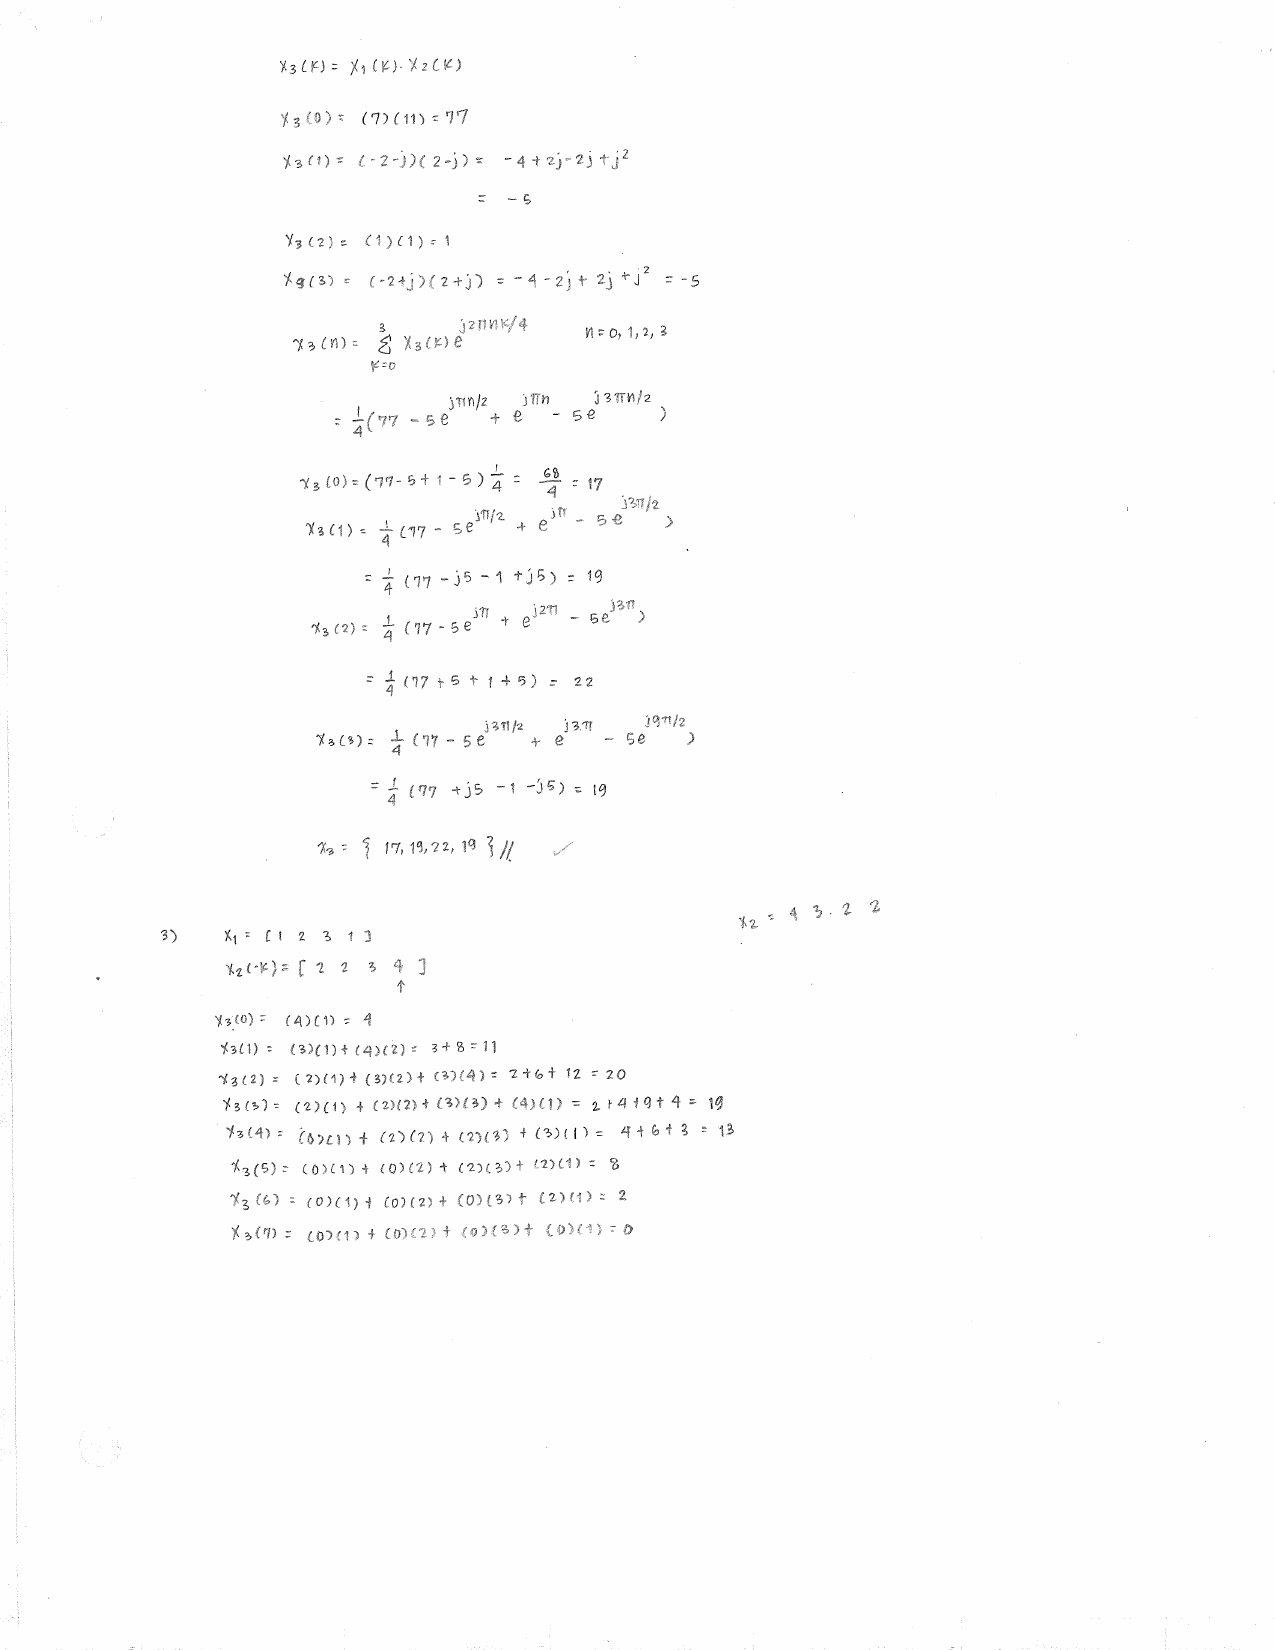 X3(K) = X1(K). X2(K)
X3(0) = (7)(11) = 77
X3(1) = (-2-j)(2-j) = -4+2j-2j+j²
= -5
X3(2) = (1)(1) = 1
X3(3) = (-2+j)(2+j) = -4-2j+2j+j² = -5
x3(n) = 3 Σ K=0 X3(K) e^{j2πnK/4} n=0,1,2,3
= 1/4 (77 - 5e^{jπn/2} + e^{jπn} - 5e^{j3πn/2})
x3(0) = (77-5+1-5) 1/4 = 68/4 = 17
x3(1) = 1/4 (77 - 5e^{jπ/2} + e^{jπ} - 5e^{j3π/2})
= 1/4 (77 -j5 -1 +j5) = 19
x3(2) = 1/4 (77 - 5e^{jπ} + e^{j2π} - 5e^{j3π})
= 1/4 (77 + 5 + 1 + 5) = 22
x3(3) = 1/4 (77 - 5e^{j3π/2} + e^{j3π} - 5e^{j9π/2})
= 1/4 (77 +j5 -1 -j5) = 19
x3 = { 17, 19, 22, 19 } // ✓
x2 = 4 3 . 2 2
3) x1 = [1 2 3 1]
x2(-K) = [2 2 3 4]
↑
x3(0) = (4)(1) = 4
x3(1) = (3)(1) + (4)(2) = 3+8 = 11
x3(2) = (2)(1) + (3)(2) + (3)(4) = 2+6+12 = 20
x3(3) = (2)(1) + (2)(2) + (3)(3) + (4)(1) = 2+4+9+4 = 19
x3(4) = (0)(1) + (2)(2) + (2)(3) + (3)(1) = 4+6+3 = 13
x3(5) = (0)(1) + (0)(2) + (2)(3) + (2)(1) = 8
x3(6) = (0)(1) + (0)(2) + (0)(3) + (2)(1) = 2
x3(7) = (0)(1) + (0)(2) + (0)(3) + (0)(1) = 0